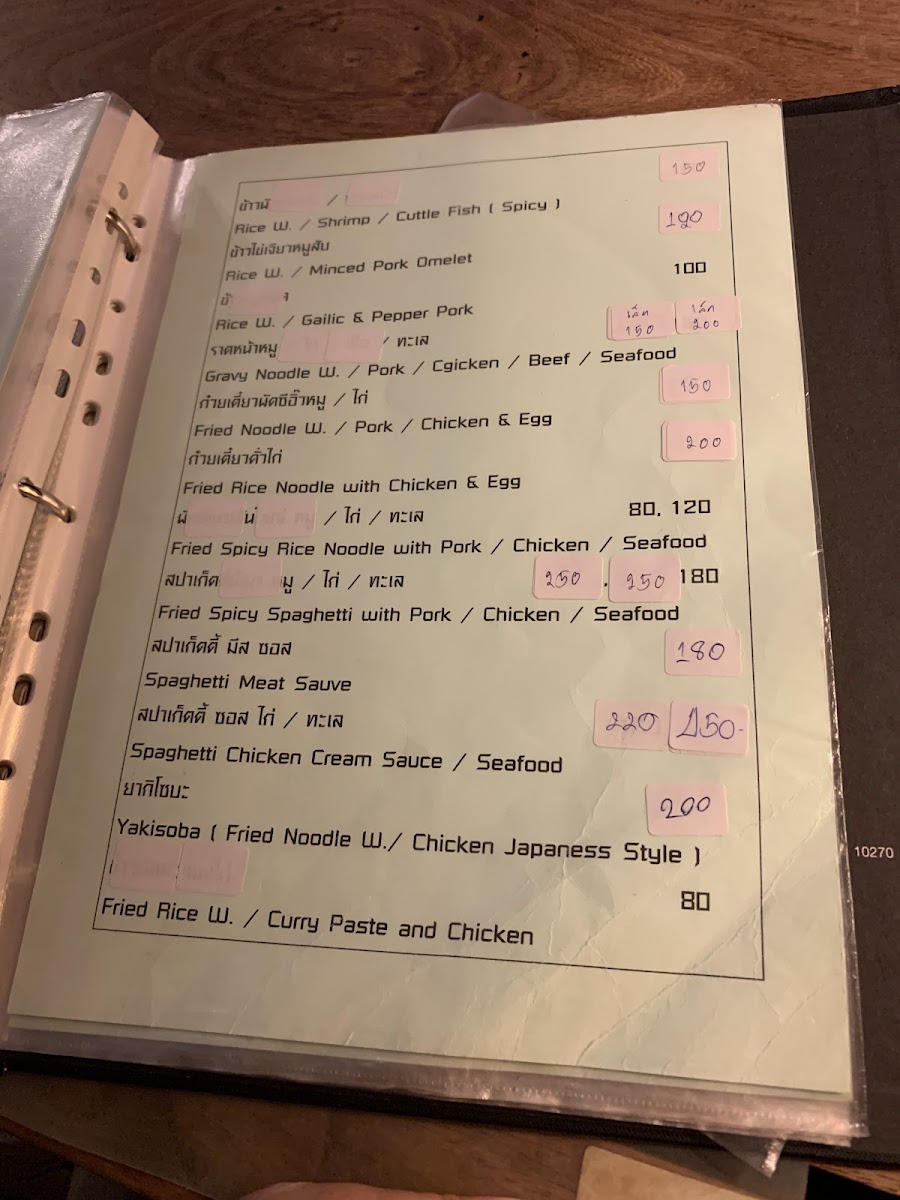 150
ข้าวผั /
Rice W. / Shrimp / Cuttle Fish ( Spicy )
190
ข้าวไข่เจียวหมูสับ
Rice W. / Minced Pork Omelet
100
Rice W. / Gailic & Pepper Pork
เล็ก 150 เล็ก 200
ราดหน้าหมู / ทะเล
Gravy Noodle W. / Pork / Cgicken / Beef / Seafood
150
ก๋วยเตี๋ยวผัดซีอิ๊วหมู / ไก่
Fried Noodle W. / Pork / Chicken & Egg
200
ก๋วยเตี๋ยวคั่วไก่
Fried Rice Noodle with Chicken & Egg
/ ไก่ / ทะเล 80, 120
Fried Spicy Rice Noodle with Pork / Chicken / Seafood
สปาเก็ต หมู / ไก่ / ทะเล 250 , 250 180
Fried Spicy Spaghetti with Pork / Chicken / Seafood
สปาเก็ตตี้ มีส ซอส 180
Spaghetti Meat Sauve
สปาเก็ตตี้ ซอส ไก่ / ทะเล 220 250-
Spaghetti Chicken Cream Sauce / Seafood
ยากิโซบะ 200
Yakisoba ( Fried Noodle W./ Chicken Japaness Style )
80
Fried Rice W. / Curry Paste and Chicken
10270